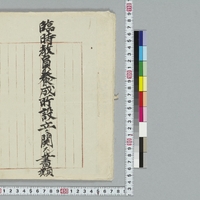 臨時教員養成所設立ニ関スル書類